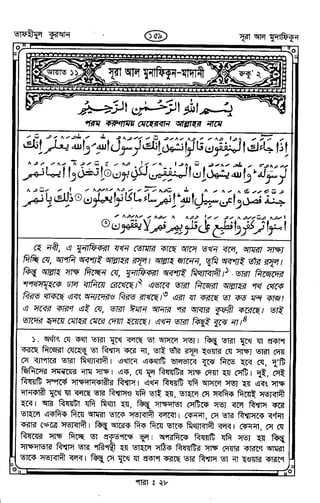 তাফহীমুল কুরআন
১৫৯
সূরা আল মুনাফিকুন
আয়াত ১১
সূরা আল মুনাফিকুন-মাদানী
রুকূ' ২
بِسْمِ اللهِ الرَّحْمٰنِ الرَّحِيْمِ
পরম করুণাময় মেহেরবান আল্লাহর নামে
اِذَا جَآءَكَ الْمُنٰفِقُوْنَ قَالُوْا نَشْهَدُ اِنَّكَ لَرَسُوْلُ اللهِ ۘ وَاللهُ يَعْلَمُ اِنَّكَ
لَرَسُوْلُهٗ ؕ وَاللهُ يَشْهَدُ اِنَّ الْمُنٰفِقِيْنَ لَكٰذِبُوْنَ ۞ اِتَّخَذُوْۤا اَيْمَانَهُمْ
جُنَّةً فَصَدُّوْا عَنْ سَبِيْلِ اللهِ ؕ اِنَّهُمْ سَآءَ مَا كَانُوْا يَعْمَلُوْنَ ۞ ذٰلِكَ بِاَنَّهُمْ
اٰمَنُوْا ثُمَّ كَفَرُوْا فَطُبِعَ عَلٰى قُلُوْبِهِمْ فَهُمْ لَا يَفْقَهُوْنَ ۞
হে নবী, এ মুনাফিকরা যখন তোমার কাছে আসে তখন বলে, আমরা সাক্ষ্য
দিচ্ছি যে, আপনি অবশ্যই আল্লাহর রসূল। আল্লাহ জানেন, তুমি অবশ্যই তাঁর রসূল।
কিন্তু আল্লাহ সাক্ষ্য দিচ্ছেন যে, মুনাফিকরা অবশ্যই মিথ্যাবাদী।১ তারা নিজেদের
শপথসমূহকে ঢাল বানিয়ে রেখেছে।২ এভাবে তারা নিজেরা আল্লাহর পথ থেকে
বিরত থাকছে এবং অন্যদেরও বিরত রাখছে।৩ এরা যা করছে তা কত মন্দ কাজ!
এ সবের কারণ এই যে, তারা ঈমান আনার পর আবার কুফরী করেছে। তাই
তাদের হৃদয়ে মোহর মেরে দেয়া হয়েছে। এখন তারা কিছুই বুঝে না।৪
১. অর্থাৎ যে কথা তারা মুখে বলছে তা আসলে সত্য। কিন্তু তারা মুখে যা প্রকাশ
করছে নিজেরা যেহেতু তা বিশ্বাস করে না, তাই তাঁর রসূল হওয়ার যে সাক্ষ্য তারা দেয়
সে ব্যাপারে তারা মিথ্যাবাদী। এখানে একথাটি ভালভাবে বুঝে নিতে হবে যে, দু'টি
জিনিসের সমন্বয়ের নাম সাক্ষ্য। এক, যে মূল বিষয়টির সাক্ষ্য দেয়া হয় সেটি। দুই, সেই
বিষয়টি সম্পর্কে সাক্ষ্যদানকারীর বিশ্বাস। এখন বিষয়টি যদি আসলে সত্য হয় এবং সাক্ষ্য
দানকারী মুখে যা বলছে তার বিশ্বাসও যদি তাই হয়, তাহলে সে সবদিক দিয়েই সত্যবাদী
হবে। আর বিষয়টা যদি মিথ্যা হয়, কিন্তু সাক্ষ্যদাতা সেটিকে সত্য বলে বিশ্বাস করে
তাহলে একদিক দিয়ে আমরা তাকে সত্যবাদী বলবো। কেননা, সে তার বিশ্বাসকে বর্ণনা
করার ক্ষেত্রে সত্যবাদী। কিন্তু আরেক দিক দিয়ে তাকে মিথ্যাবাদী বলব। কেননা, সে যে
বিষয়ের সাক্ষ্য দিচ্ছে তা প্রকৃতপক্ষে ভুল। অপরদিকে বিষয়টি যদি সত্য হয় কিন্তু
সাক্ষ্যদাতার বিশ্বাস তার পরিপন্থী হয় তাহলে সঠিক বিষয়টির সাক্ষ্য দেয়ার কারণে আমরা
তাকে সত্যবাদী বলব। কিন্তু সে মুখে যা প্রকাশ করছে তার বিশ্বাস তা না হওয়ার কারণে
পারা : ২৮